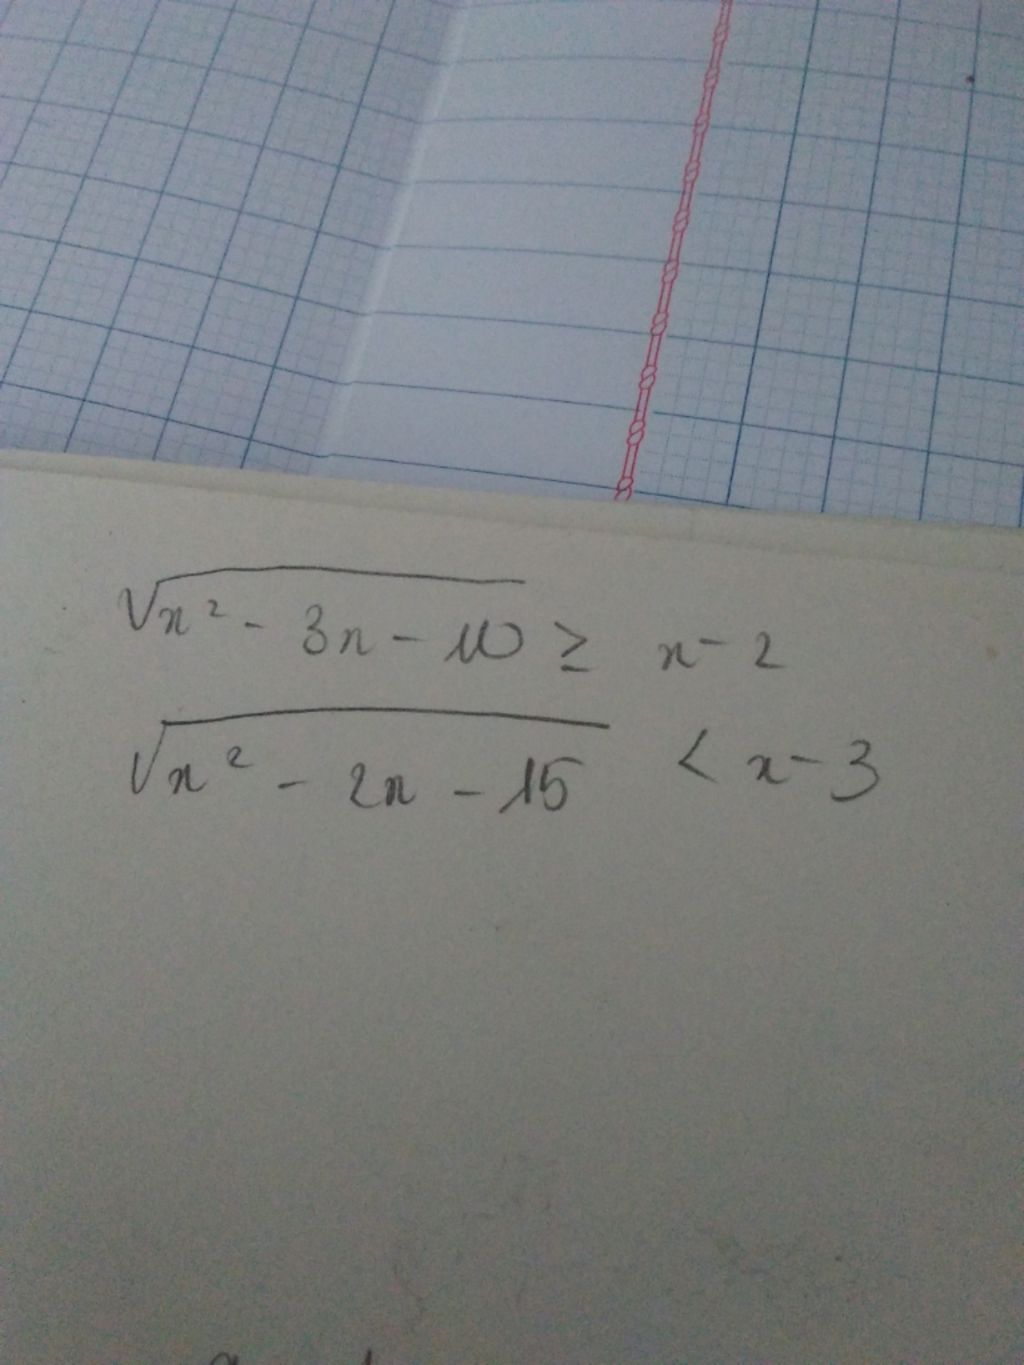 √x² - 3x - 10 ≥ x - 2
√x² - 2x - 15 < x - 3